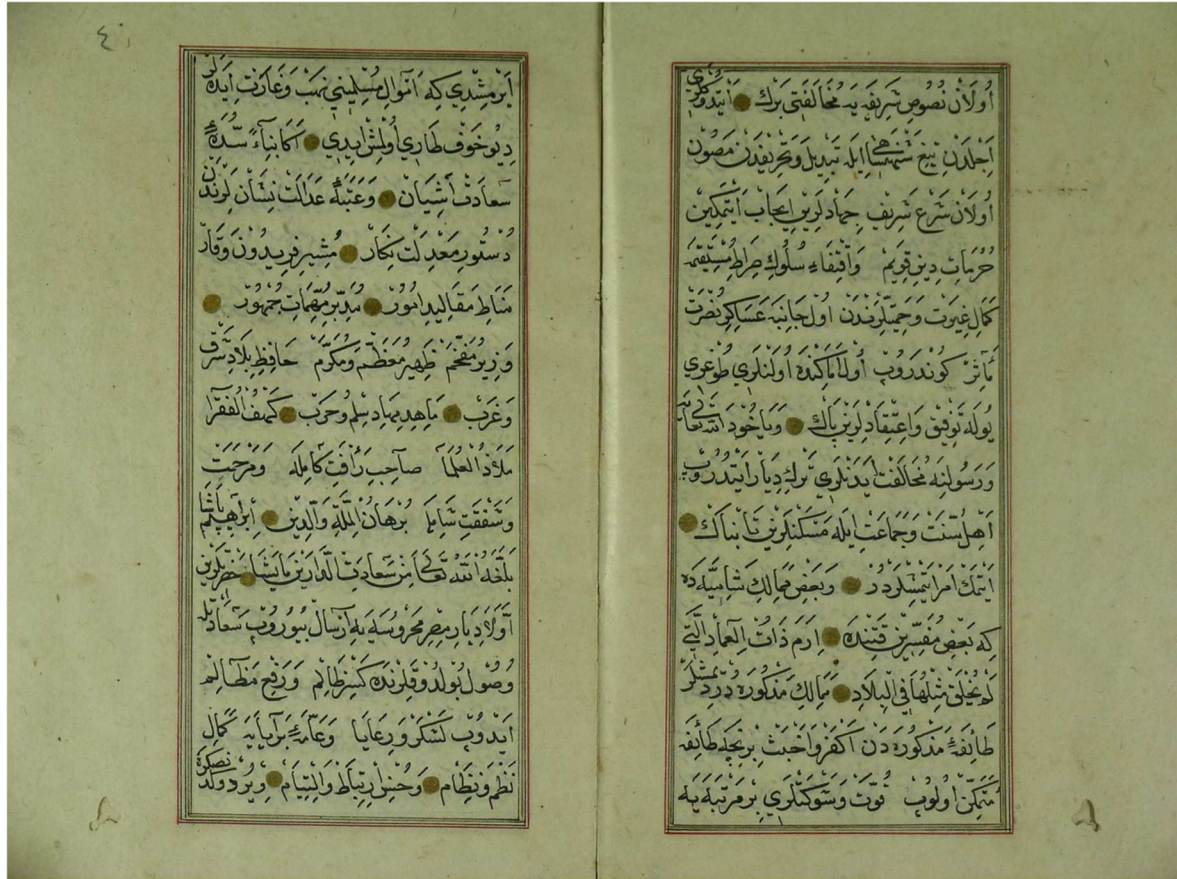 اولان نصوص شریفه یه مخالفتی ترك ایتدوکلری
اجلدن تیغ شهنشاهی ایله تبدیل و تحریفدن مصون
اولان شرع شریف جهادلرین ایجاب ایتمکین
حرمات دین قویم واقتفاء سلوك صراط مستقیمه
کمال غیرت وحمیتلرندن اول جانبه عساکر نصرت
مآثر کوندروب اول اماکنده اولنلری طوغری
یوله توفیق واعتقادلرین پاك ویاخود الله تعالی
ورسولنه مخالفت ایدنلری ترك دیار ایتدروب
اهل سنت وجماعت ایله مسکنلرین تابناك
ایتمك امر ایتمشلردر وبعض ممالك شامیه ده
که بعض مفسرین قتنده ارم ذات العماد التی
لم یخلق مثلها فی البلاد ممالك مذکوره در دیمشلر
طائفۀ مذکوره دن اکفر واخبث برنجه طائفه
متمکن اولوب قوت وشوکتلری بر مرتبه یه
٤
ایرمشدی که اموال مسلمینی نهب وغارت ایده لر
دیو خوف طاری اولمش ایدی اکا بناء سدۀ
سعادت آشیان وعتبۀ عدالت نشان لرندن
دستور معدلت نکار مشیر فریدون وقار
مناط مقالید امور مدبر مهمات جمهور
وزیر مفخم ظهیر معظم ومکرم حافظ بلاد شرق
وغرب ماهد مهاد سلم وحرب کهف الفقرا
ملاذ العلما صاحب رأفت کامله ومرحمت
وشفقت شامله برهان الملة والدین ابراهیم پاشا
بلغه الله تعالی من سعادت الدارین مایشا حضرتلرین
اولا دیار مصر محروسه یه ارسال بیوروب سعادتله
وصول بولدوقلرنده کسر ظالم ورفع مظالم
ایدوب لشکر ورعایا وعامۀ برایایه کمال
نظم ونظام وحسن ارتباط والتیام ویردوکلرندنصکره